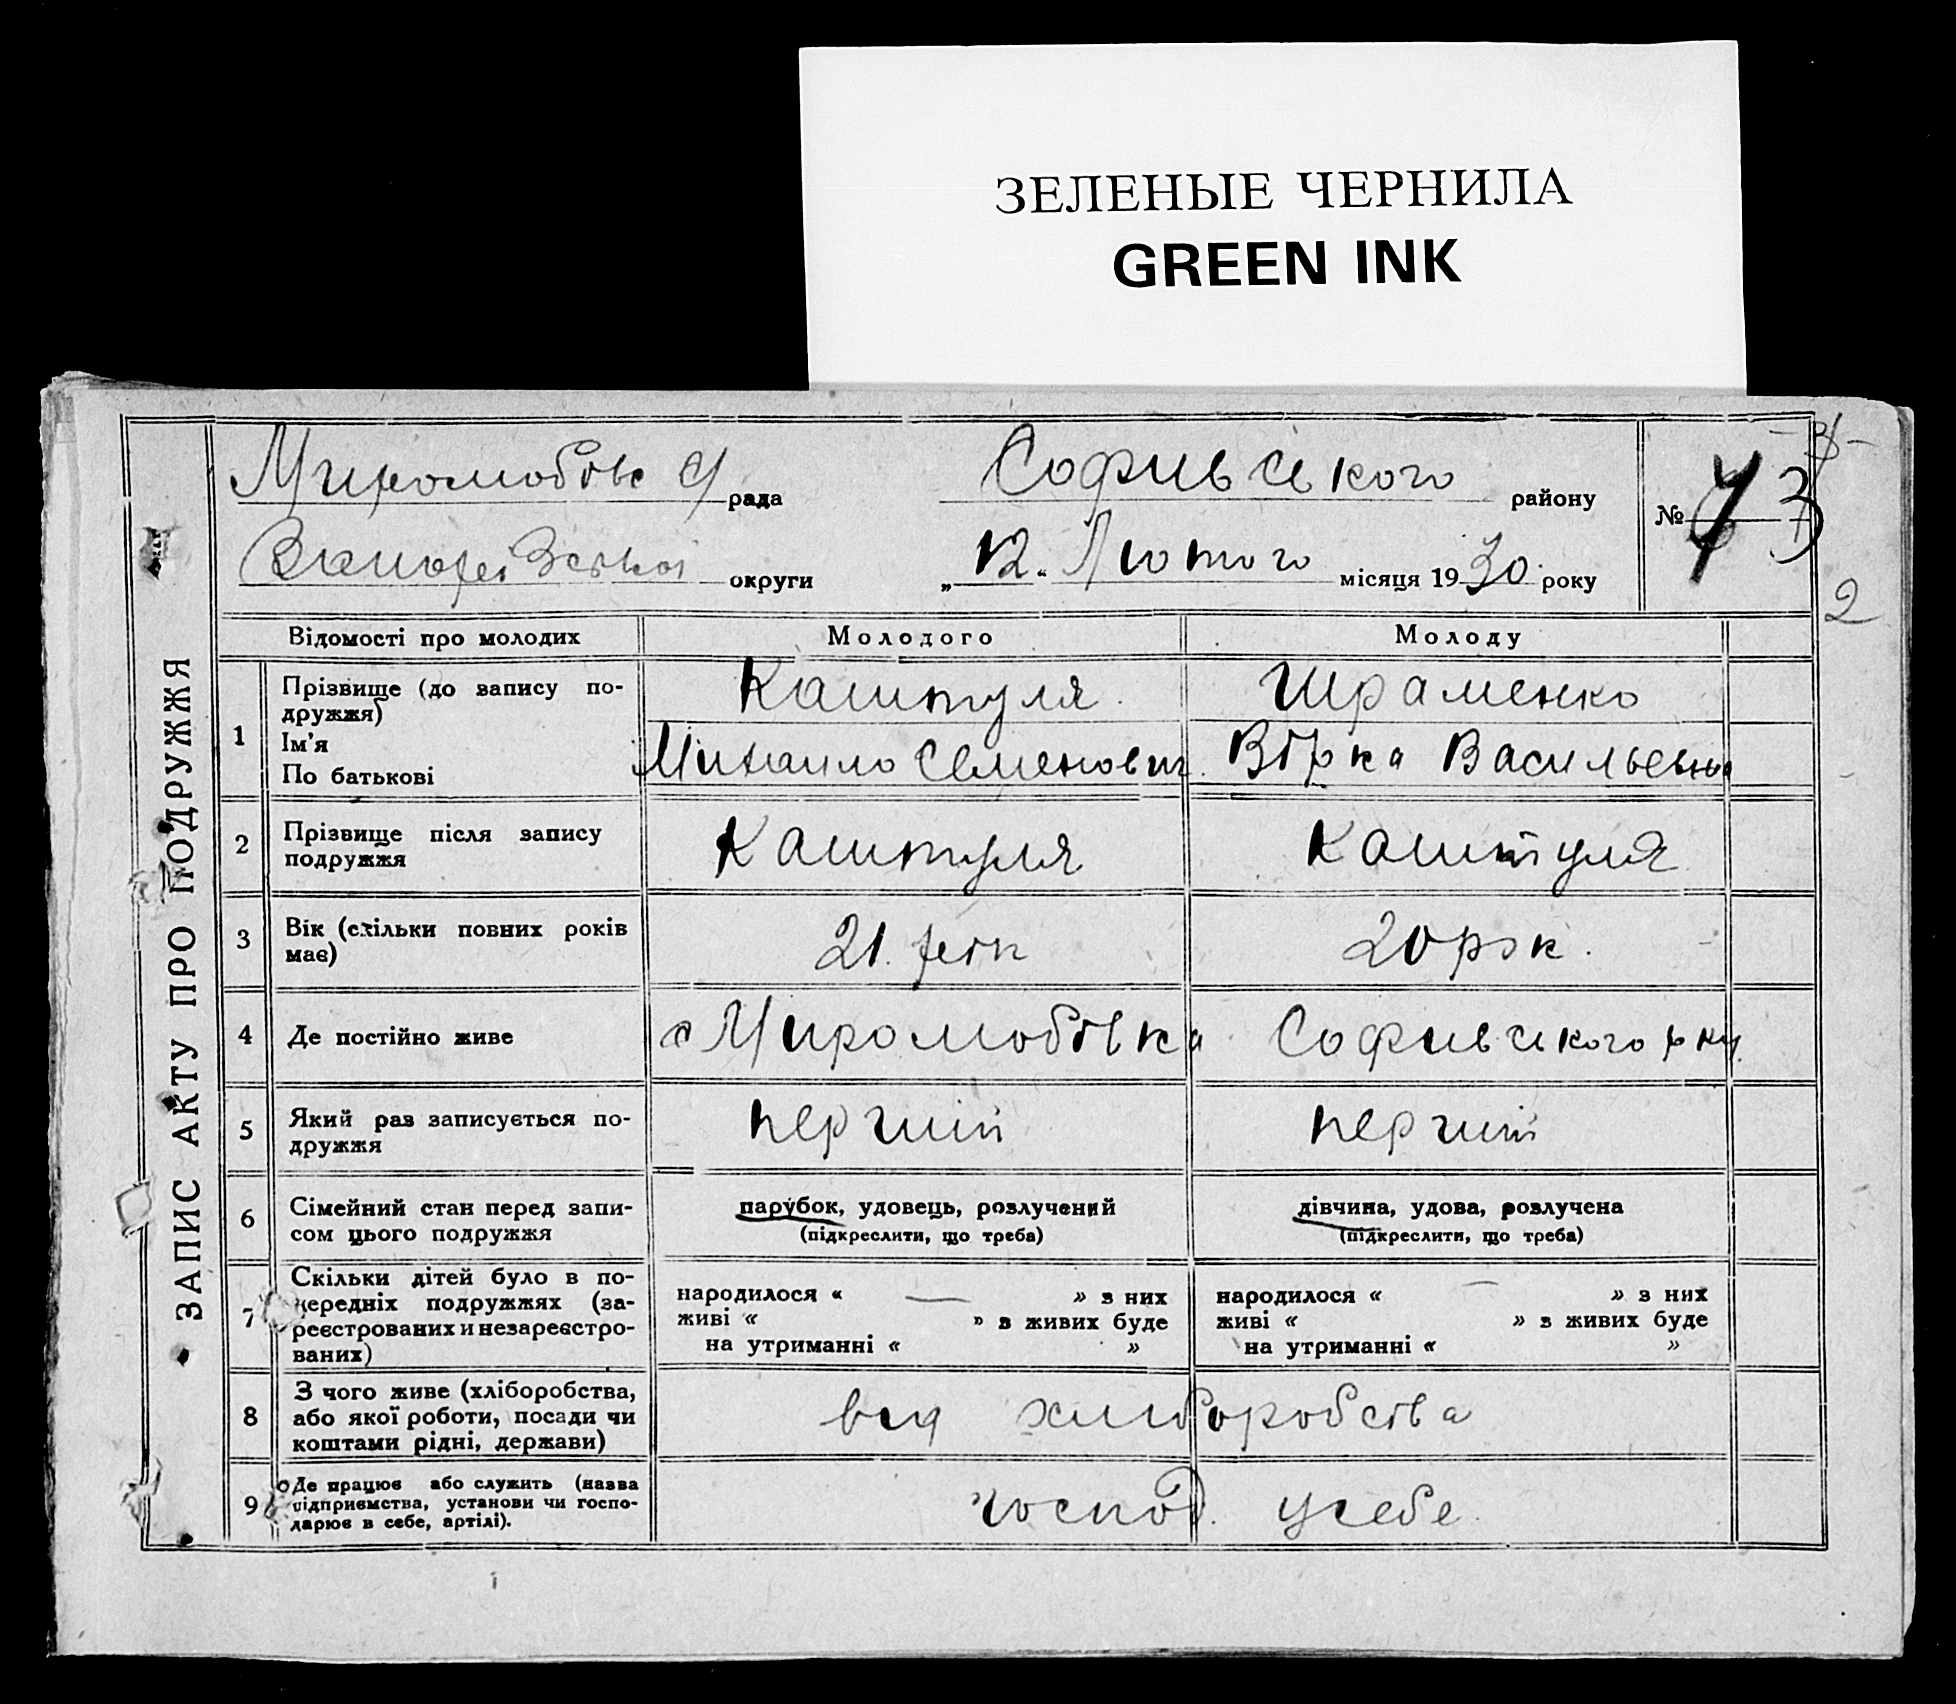 ЗЕЛЕНЫЕ ЧЕРНИЛА
GREEN INK
ЗАПИС АКТУ ПРО ПОДРУЖЖЯ
Миролюбівс С/рада Софиевського району
Запорізької округи „12" Лютого місяця 1930 року
№ 3
2
Відомості про молодих Молодого Молоду
1 Прізвище (до запису по-
дружжя) Каштуля Шраменко
Ім'я
По батькові Михаило Семенович Вірка Васильевна
2 Прізвище після запису
подружжя Каштуля Каштуля
3 Вік (скільки повних років
має) 21. рік 20 рок.
4 Де постійно живе с Миролюбівка Софиевського р-ну
5 Який раз записується по-
дружжя перший перший
6 Сімейний стан перед запи-
сом цього подружжя парубок, удовець, розлучений дівчина, удова, розлучена
(підкреслити, що треба) (підкреслити, що треба)
7 Скільки дітей було в по-
передніх подружжях (за-
реєстрованих и незареєстро-
ваних)
народилося « — » з них народилося « — » з них
живі « » з живих буде живі « » з живих буде
на утриманні « » на утриманні « »
8 З чого живе (хліборобства,
або якої роботи, посади чи
коштами рідні, держави) вид хлиборобства
9 Де працює або служить (назва
підприємства, установи чи госпо-
дарює в себе, артілі). господ. у себе